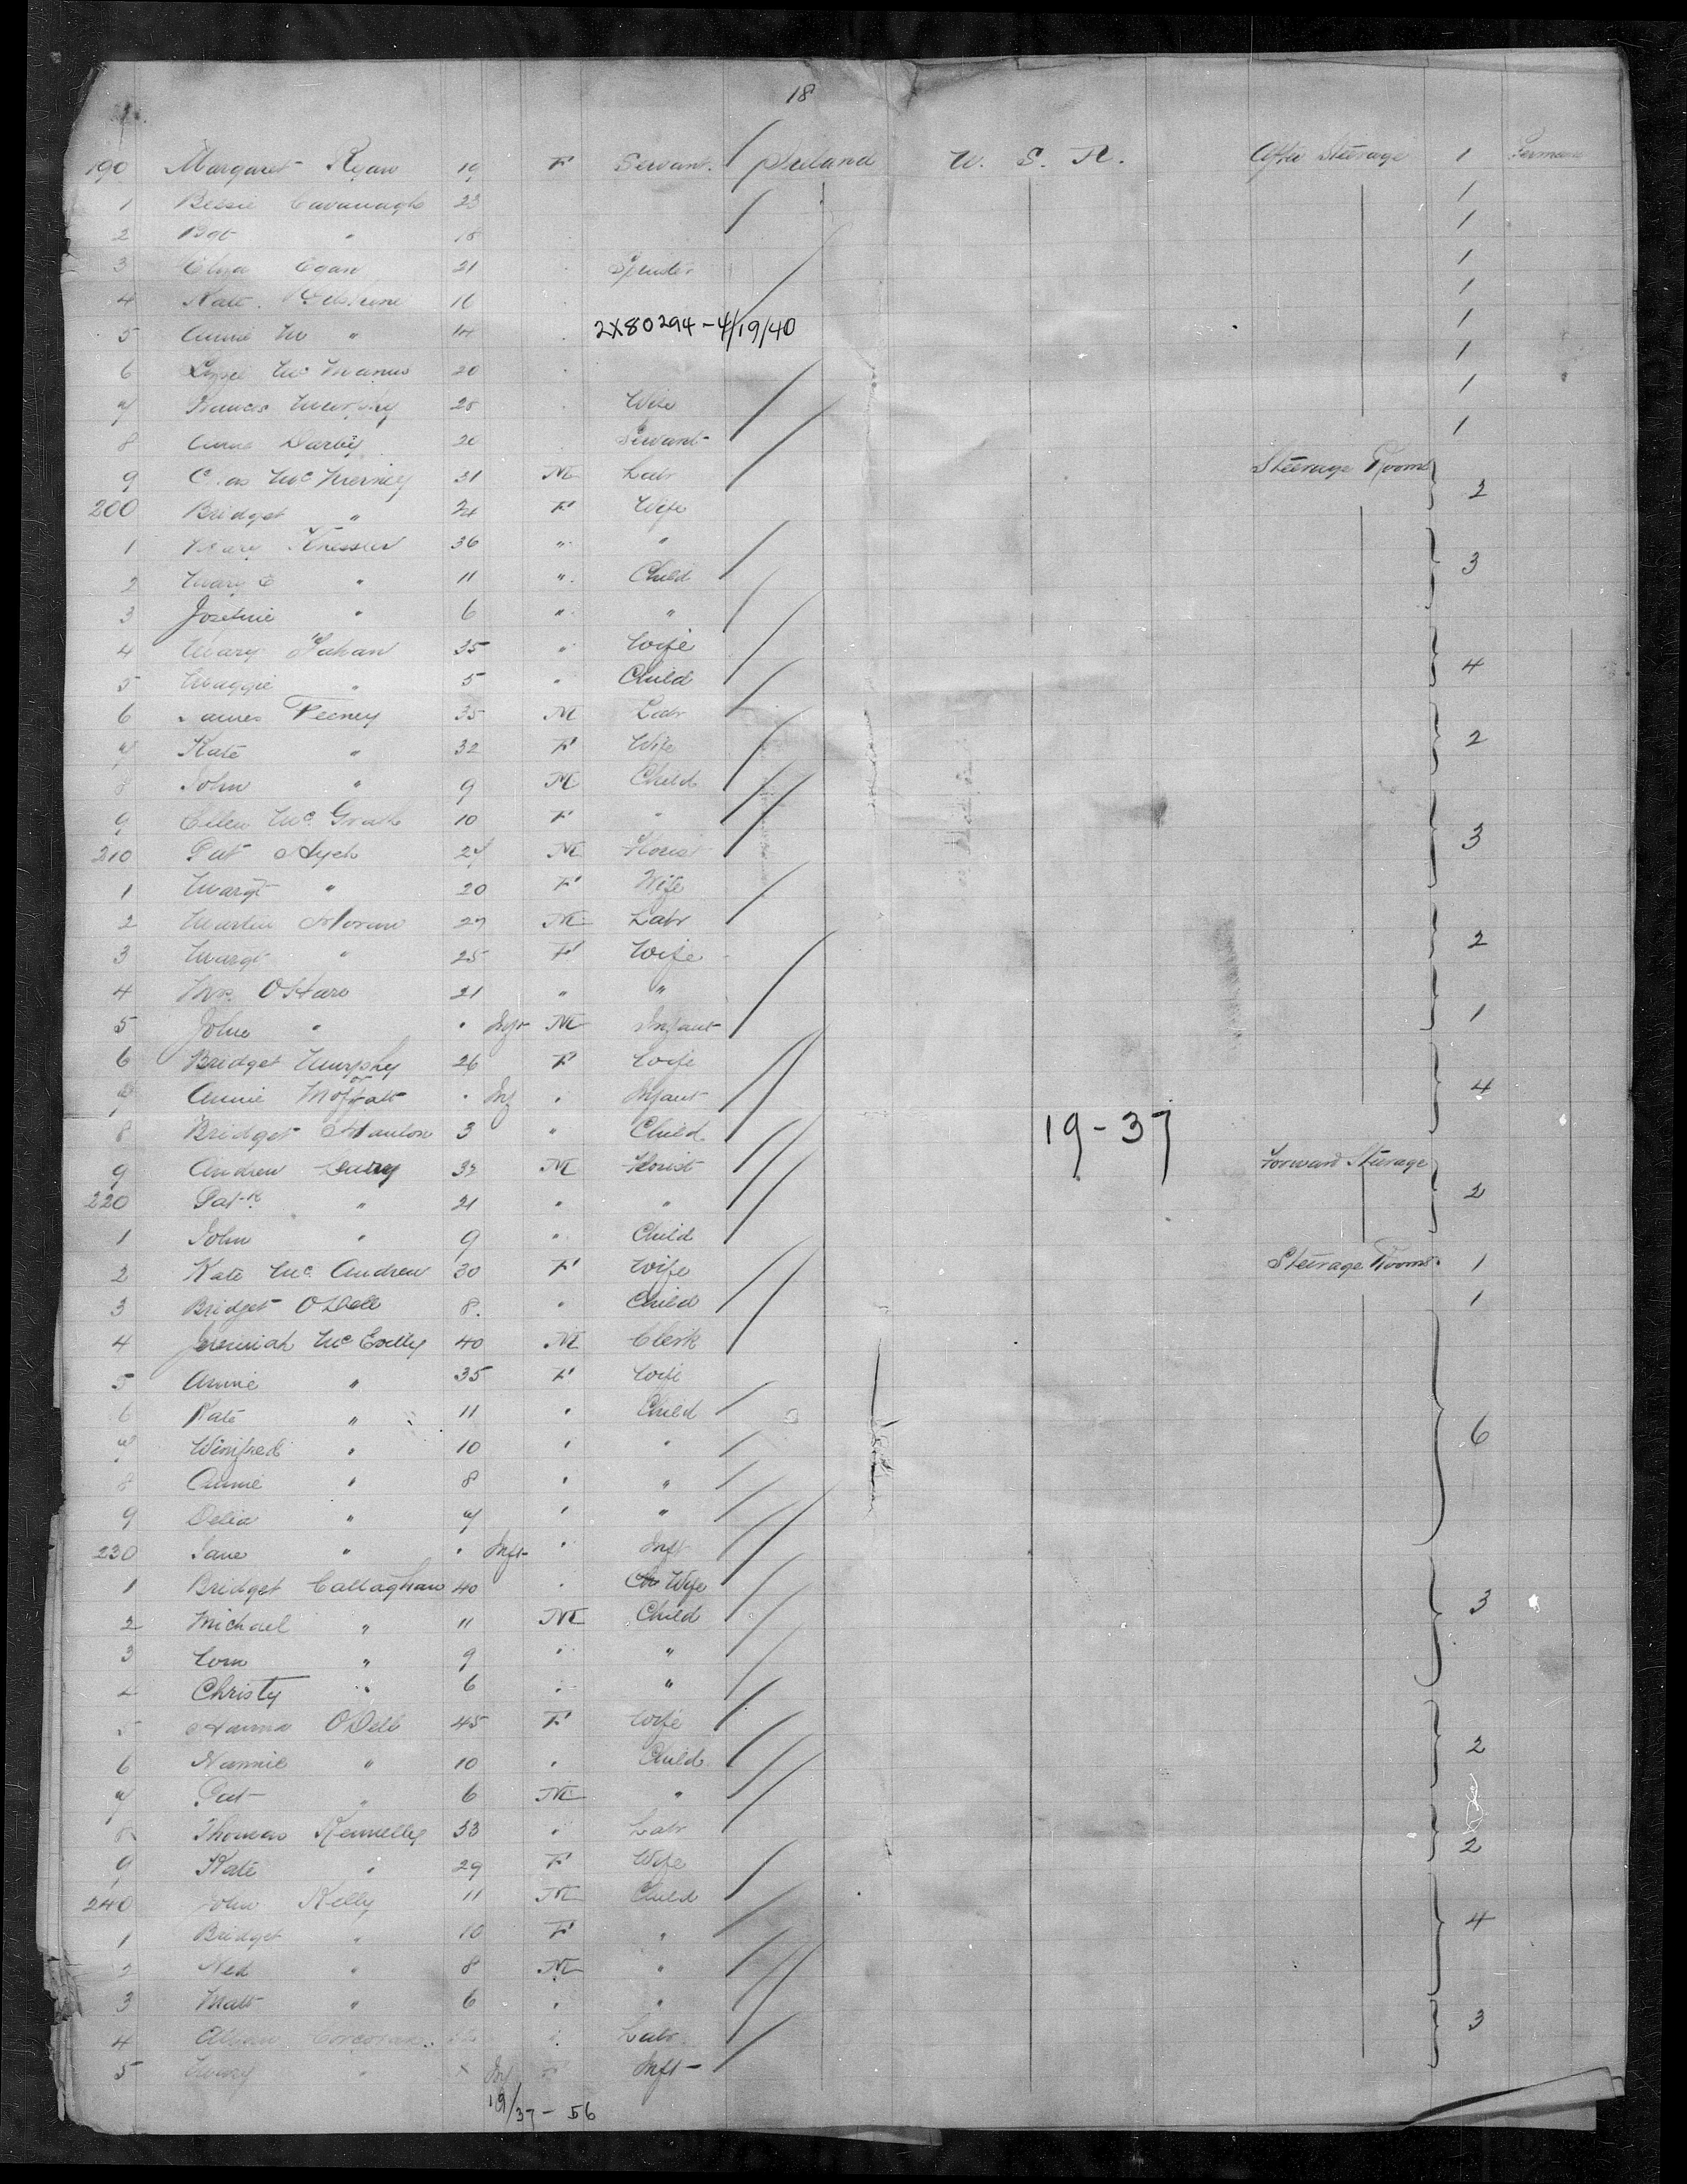 18
190 Margaret Ryan 19 F Servant. Ireland U. S. A. After Steerage 1 Permane
1 Bessie Cavanagh 23 1
2 " 18 1
3 Eliza Egan 21 Spinster 1
4 Kate 16 1
5 Annie M " 14 2X80294-4/19/40 1
6 Lizzie McManus 20 1
7 Frances Murphy 28 Wife 1
8 Anne Darby 20 Servant 1
9 McInerney 31 M Labr Steerage Rooms
200 Bridget " 24 F Wife 2
1 Mary Knessler 36 " "
2 Mary E " 11 " Child 3
3 Josefine " 6 " "
4 Mary Gahan 35 " Wife
5 Maggie " 5 " Child 4
6 James Feeney 35 M Labr
7 Kate " 32 F Wife 2
8 John " 9 M Child
9 Ellen McGrath 10 F "
210 Pat 27 M 3
1 Margt " 20 F Wife
2 Martin Moran 27 M Labr
3 Margt " 25 F Wife 2
4 Mrs. O'Hara 21 " "
5 John " " Inft M Infant 1
6 Bridget Murphy 26 F Wife
7 Annie Moffatt " Inf " Infant 4
8 Bridget Hanlon 3 " Child 19-37
9 Andrew 32 M Forward Steerage
220 Patk " 21 " " 2
1 John " 9 " Child
2 Kate McAndrew 30 F Wife Steerage Rooms. 1
3 Bridget O'Dell 8. " Child 1
4 Jeremiah McEvilly 40 M Clerk
5 Annie " 35 F Wife
6 Kate " 11 " Child
7 Winifred " 10 " " 6
8 Annie " 8 " "
9 Delia " 7 " "
230 Jane " " Inft " Inft
1 Bridget Callaghan 40 " Wife
2 Michael " 11 M Child 3
3 Tom " 9 " "
4 Christy " 6 " "
5 Hanna O'Dell 45 F Wife
6 Nannie " 10 " Child 2
7 Pat " 6 M "
8 Thomas Kennelly 33 " Labr 2
9 Kate " 29 F Wife
240 John Kelly 11 M Child
1 Bridget " 10 F " 4
2 Ned " 8 M "
3 Matt " 6 " "
4 Corcoran " Labr 3
5 Mary " Inf F Inft
19/37-56